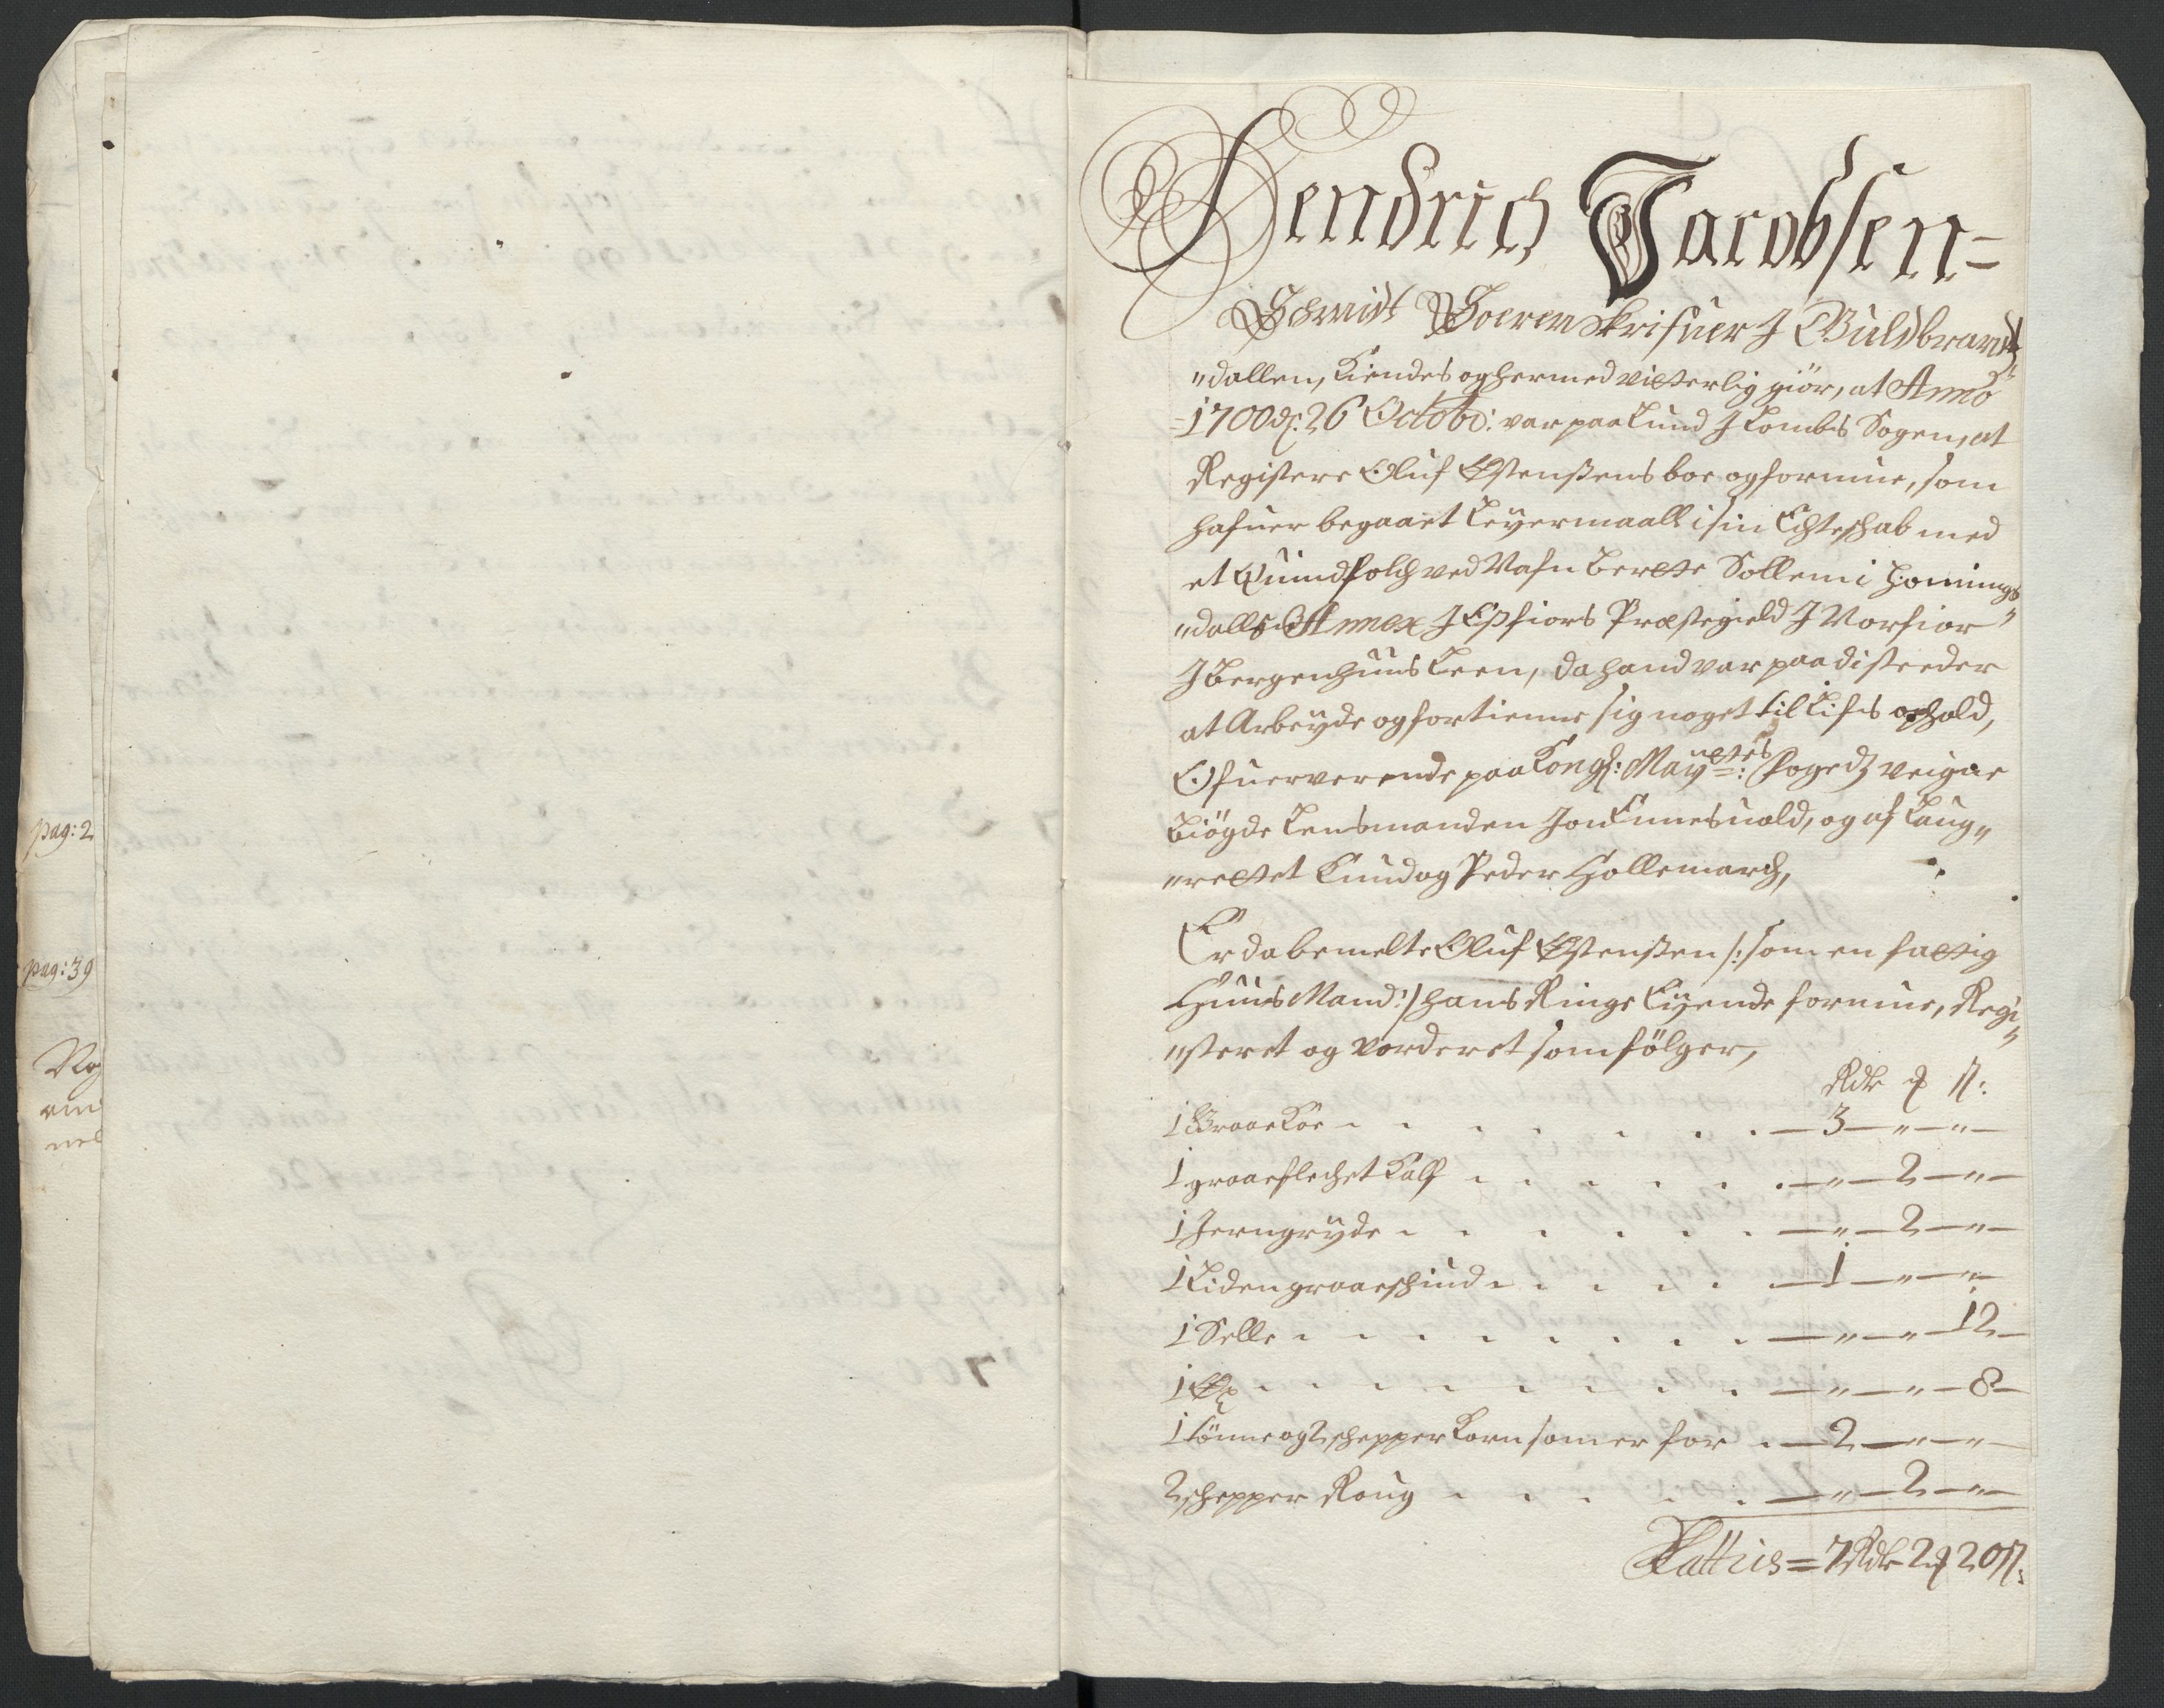 pag: 2
pag: 39
Hendrich Jacobsen=
Schmidt Sorenskrifuer J Guldbrands
"dallen, Kiendes og hermed vitterlig giör, at Anno
=1700 d: 26 Octobr: var paa Lund J Lombs Sogen, at
Registere Oluf Ostenßens boe og formue, som
hafuer begaaet Leyermaall i sin Echteschab med
et Quindfolch ved Nafn Berette Sollem i Honnings
"dalls Annex J Eßfiors Præstegield J Norfior
J Bergenhuus Leen, da hand var paa di steeder
at Arbeyde og fortienne sig noget til Lifs ophold,
Ofuerverende paa Kongl: Mayttes: fogedz veigne
Bÿgde Lensmanden Jon Sunesuold, og af Laug"
"rettet Knud og Peder Hollemarch,
Er da bemelte Oluf Ostenßen /: som en fattig
Huus Mand :/ hans Ringe Eyende formue, Regi"
"steret og vorderet som fölger,
Rdr ß:
1 Graae Koe - 3 - " - "
1 graaeflechet Kalf - " - 2 - "
1 Jerngryde - " - 2 - "
1 Liden graae schiud - 1 - " - "
1 Selle - " - " - 12
1 Öx - " - " - 8
1 tönne og 2 schepper Korn som er for - 2 - " - "
2 schepper Roug - " - 2 - "
Lattus = 7 Rdr 2 20 ß: